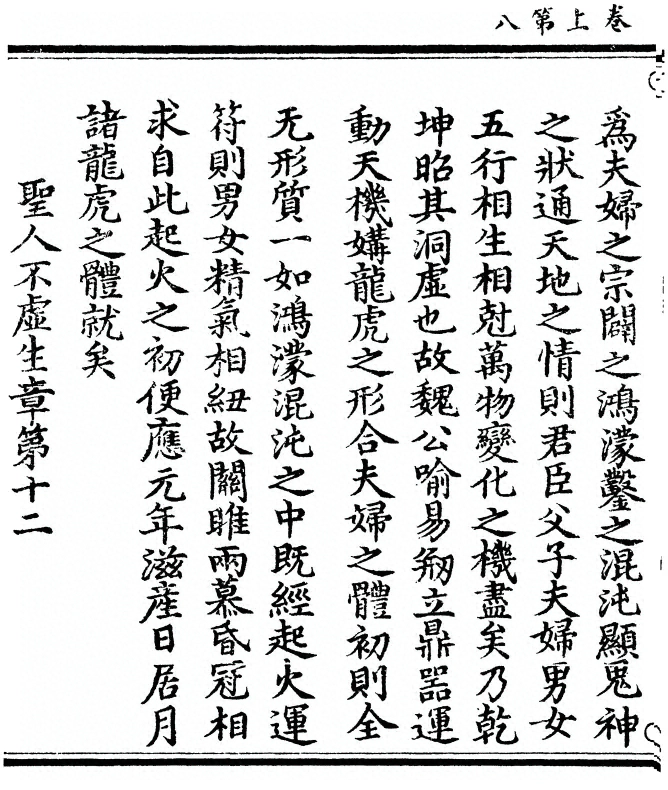 卷上第八
爲夫婦之宗闢之鴻濛鑿之混沌顯䰟神
之狀通天地之情則君臣父子夫婦男女
五行相生相尅萬物變化之機盡矣乃乾
坤昭其洞虛也故魏公喻易剏立鼎器運
動天機媾龍虎之形合夫婦之體初則全
无形質一如鴻濛混沌之中既經起火運
符則男女精氣相紐故關雎兩慕昏冠相
求自此起火之初便應元年滋産日居月
諸龍虎之體就矣
聖人不虛生章第十二